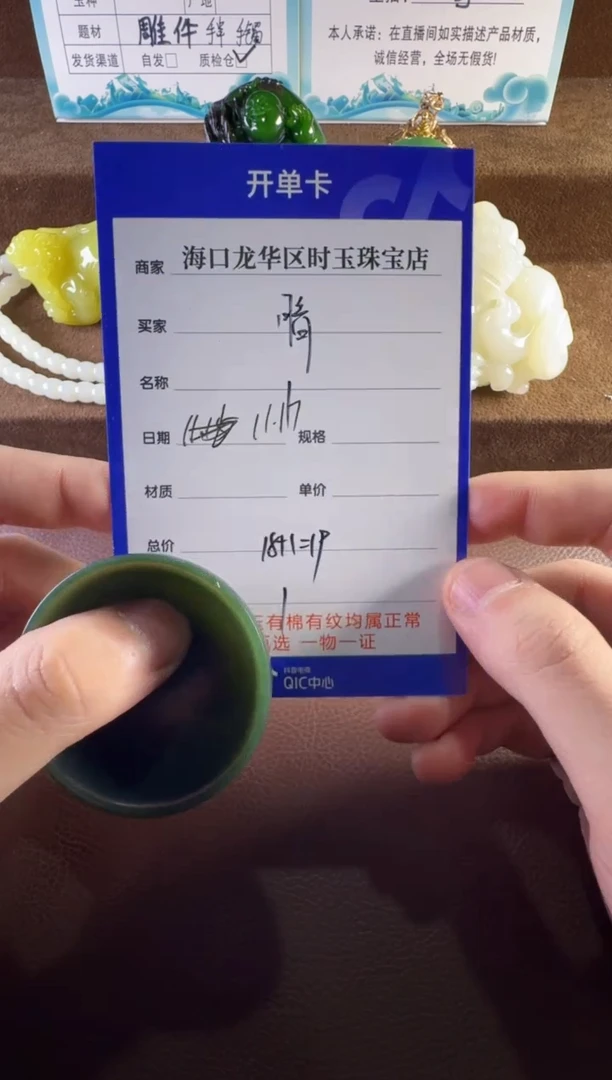 题材 雕件 手镯
发货渠道 自发□ 质检仓☑
本人承诺：在直播间如实描述产品材质，
诚信经营，全场无假货！
开单卡
商家 海口龙华区时玉珠宝店
买家
名称
日期 11.17 规格
材质 单价
总价 18+1=19
有棉有纹均属正常
选 一物一证
抖音电商
QIC中心